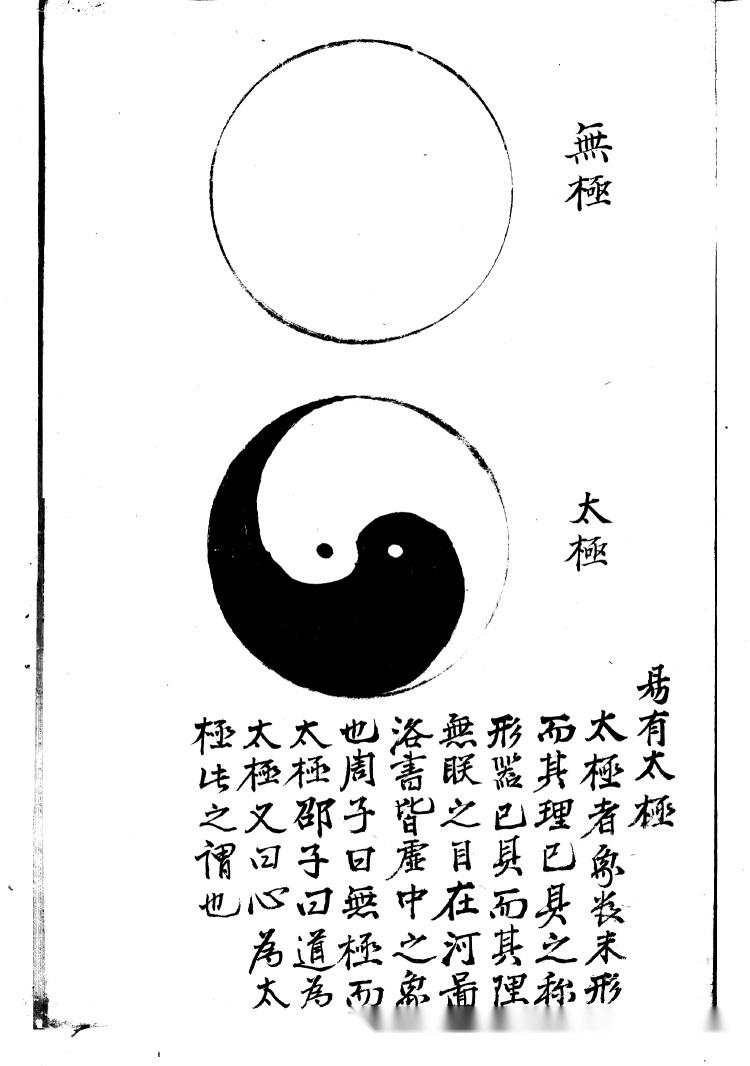 無極
太極
易有太極
太極者象数未形
而其理已具之称
形器已具而其理
無眹之目在河啚
洛書皆虚中之象
也周子曰無極而
太極邵子曰道為
太極又曰心為太
極此之謂也